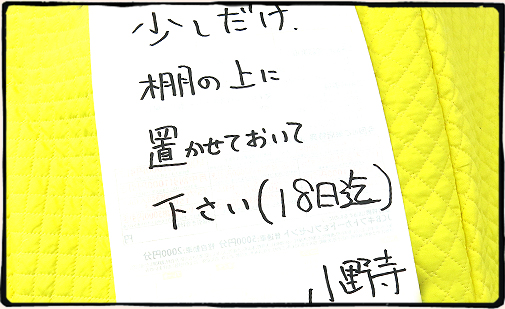 少しだけ.
棚の上に
置かせておいて
下さい(18日迄)
小野寺